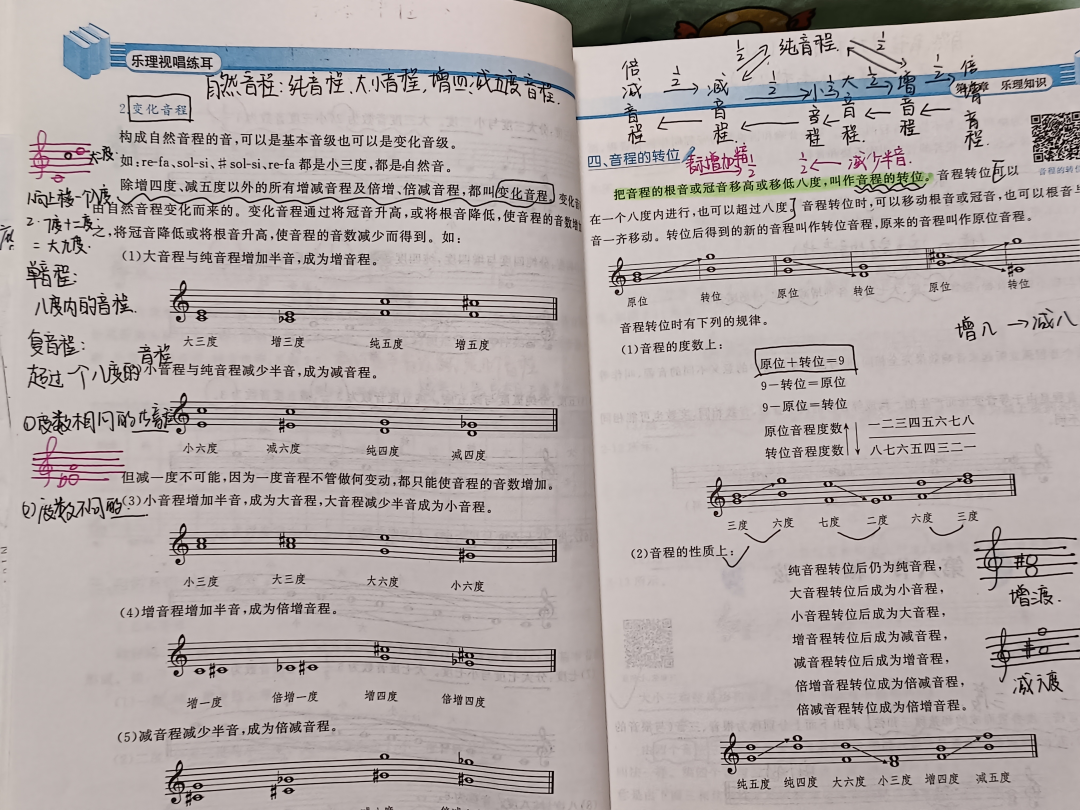 乐理视唱练耳
自然音程:纯音程,大小音程,增四,减五度音程.
2.变化音程
构成自然音程的音,可以是基本音级也可以是变化音级。
如:re-fa、sol-si、♯sol-si、re-fa 都是小三度,都是自然音。
除增四度、减五度以外的所有增减音程及倍增、倍减音程,都叫变化音程。变化音
由自然音程变化而来的。变化音程通过将冠音升高,或将根音降低,使音程的音数增加
之,将冠音降低或将根音升高,使音程的音数减少而得到。如:
(1)大音程与纯音程增加半音,成为增音程。
大三度 增三度 纯五度 增五度
小音程与纯音程减少半音,成为减音程。
小六度 减六度 纯四度 减四度
但减一度不可能,因为一度音程不管做何变动,都只能使音程的音数增加。
(3)小音程增加半音,成为大音程,大音程减少半音成为小音程。
小三度 大三度 大六度 小六度
(4)增音程增加半音,成为倍增音程。
增一度 倍增一度 增四度 倍增四度
(5)减音程减少半音,成为倍减音程。
大九度.
单音程:
八度内的音程.
复音程:
超过一个八度的音程
①度数相同的
②度数不同的
纯音程.
倍减音程 1/2 减音程 1/2 小音程 1/2 大音程 1/2 增音程 1/2 倍增音程
乐理知识
四、音程的转位
减少半音.
把音程的根音或冠音移高或移低八度,叫作音程的转位。音程转位可以
在一个八度内进行,也可以超过八度。音程转位时,可以移动根音或冠音,也可以根音与
音一齐移动。转位后得到的新的音程叫作转位音程,原来的音程叫作原位音程。
原位 转位 原位 转位 原位 转位
音程转位时有下列的规律。
增八→减八
(1)音程的度数上:
原位+转位=9
9-转位=原位
9-原位=转位
原位音程度数 一二三四五六七八
转位音程度数 八七六五四三二一
三度 六度 七度 二度 六度 三度
(2)音程的性质上:
纯音程转位后仍为纯音程,
大音程转位后成为小音程,
小音程转位后成为大音程,
增音程转位后成为减音程,
减音程转位后成为增音程,
倍增音程转位成为倍减音程,
倍减音程转位成为倍增音程。
纯五度 纯四度 大六度 小三度 增四度 减五度